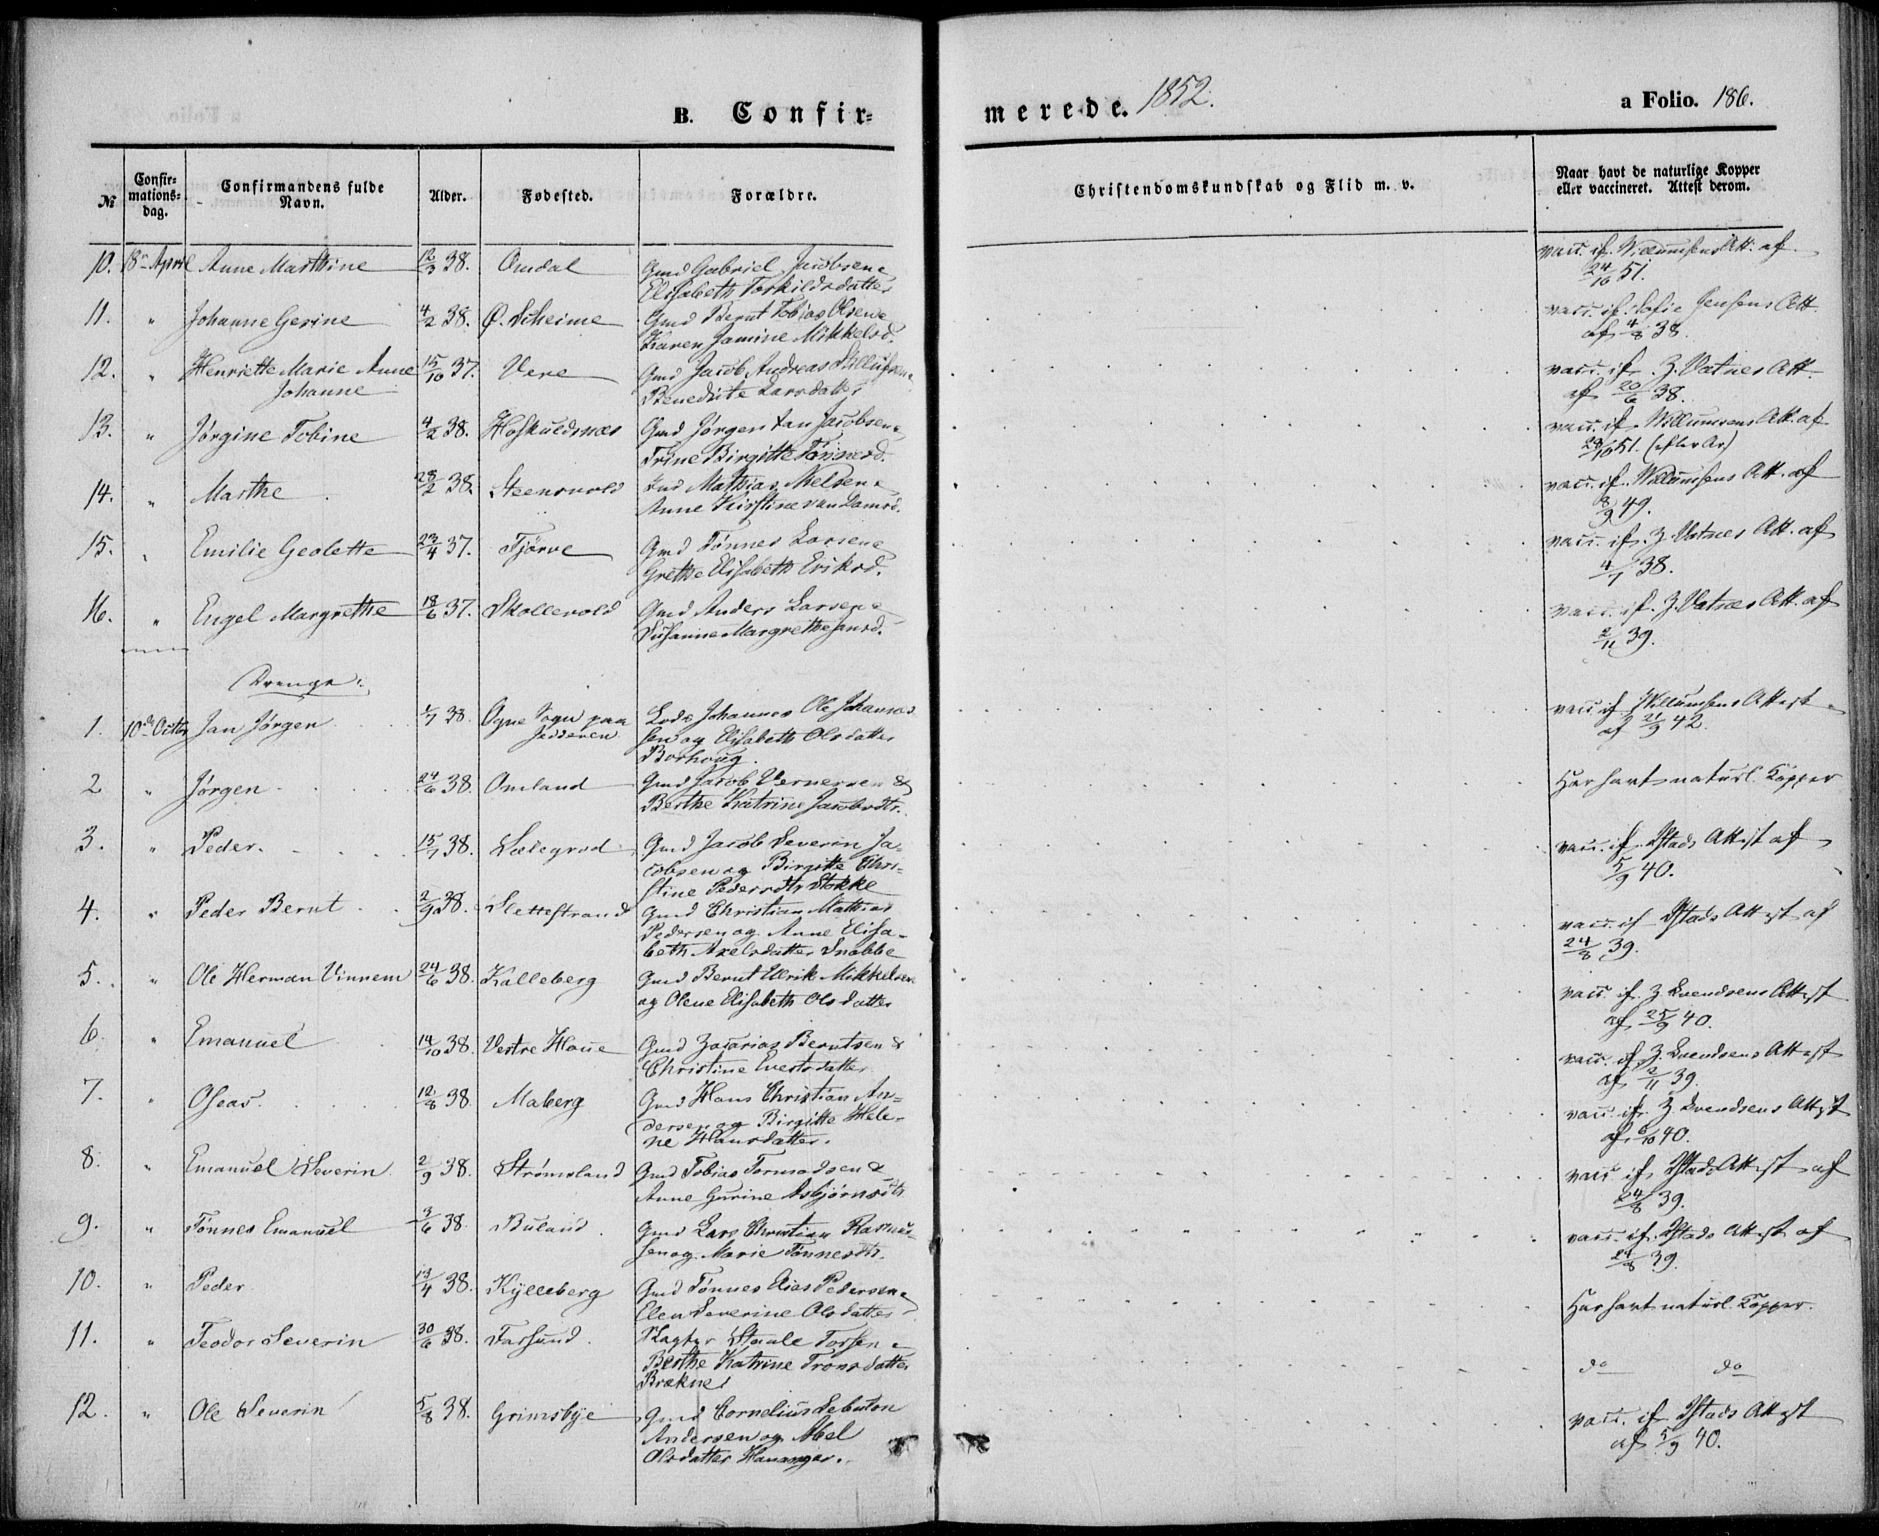 B. Confir=
merede. 1852.
a Folio. 186.
№
Confir=
mations=
dag.
Confirmandens fulde
Navn.
Alder.
Fødested.
Forældre.
Christendomskundskab og Flid m. v.
Naar havt de naturlige Kopper
eller vaccineret. Attest derom.
10. 18de April Anne Marthine 12/3 38. Omdal Gmd Gabriel Jacobsen &
Elisabeth Torkildsdatter
vacc. if. Willumsens Att. af
24/10 51.
11. " Johanne Gesine 4/2 38. Ø. Skeime Gmd Bernt Tobias Olsen &
Karen Jamine Mikkelsd.
vacc. if. Sofie Jensens Att.
af 4/8 38.
12. " Henriette Marie Anne 15/10 37. Vere Gmd Jacob Andreas
Johanne Benedicte Larsdatter
vacc. if. Z. Vatnes Att.
af 20/6 38.
13. " Jørgine Tobine 4/2 38. Hoskuldsnæs Gmd Jørgen Jan Jacobsen &
Trine Birgitte Tønnesd.
vacc. if. Willumsens Att. af
51.
14. " Marthe 28/2 38. Steensvold Mathias Nielsen &
Anne Kirstine
vacc. if. Willumsens Att. af
8/9 49.
15. " Emilie Geolette 23/4 37. Tjørve Gmd Tønnes Larsen &
Grethe Elisabeth Eriksd.
vacc. if. Z. Vatnes Att. af
4/7 38.
16. " Engel Margrethe 18/6 37. Skollevold Gmd Anders Larsen &
Susanne Margrethe Jansd.
vacc. if. Z. Vatnes Att. af
2/11 39.
Drenge:
1. 10de Octbr Jan Jørgen 1/7 38. Ogne Sogn paa Lods Johannes Ole Johannes
Jedderen sen og Elisabeth Olsdatter
Borhoug.
vacc. if. Willumsens Attest
af 21/9 42.
2 " Jørgen 24/6 38. Omland Gmd Jacob Vernersen &
Berthe Katrine Jacobsdtr.
Har havt naturl. Kopper
3. " Peder. 15/7 38. Lælegrod Gmd Jacob Severin Ja-
cobsen og Birgitte Chri-
stine Pedersdtr Stokke
vacc. if. Ystads Attest af
5/9 40.
4. " Peder Bernt 2/9 38. Slettestrand Gmd Christian Mathias
Pedersen og Anne Elisa-
beth Axelsdatter Snobbe
vacc. if. Ystads Attest af
24/8 39.
5. " Ole Herman Vinnem 24/6 38. Kalleberg Gmd Bernt Ulrik Mikkelsen
og Olene Elisabeth Olsdatter
vacc. if. Z. Svendsens Attest
af 25/9 40.
6. " Emanuel 14/10 38. Vestre Haue Gmd Zacarias Berntsen &
Christine Evertsdatter
vacc. if. Z. Svendsens Attest
af 2/11 39.
7. " Oseas. 12/8 38. Maberg Gmd Hans Christian An-
dersen og Birgitte Hele-
ne Hansdatter.
vacc. if. Z. Svendsens Attest
af 6/10 40.
8. " Emanuel Severin 2/9 38. Strømsland Gmd Tobias Tormodsen &
Anne Gurine Asbjørnsdtr
vacc. if. Ystads Attest af
24/8 39.
9. " Tønnes Emanuel 3/6 38. Buland Gmd Lars Christian Rasmus-
sen og Marie Tønnesdtr.
vacc. if. Ystads Attest af
24/8 39.
10. " Peder 13/4 38. Kylleberg Gmd Tønnes Elias Pedersen &
Elen Severine Olsdatter
Har havt naturl. Kopper.
11. " Teodor Severin 30/6 38. Farsund. Slagter Staale Torsen &
Berthe Katrine Tronsdatter
Brækne
do do
12. " Ole Severin 5/8 38. Grimsbye Gmd Cornelius
Andersen og Abel
Olsdatter Hananger.
vacc. if. Ystads Attest
af 5/9 40.